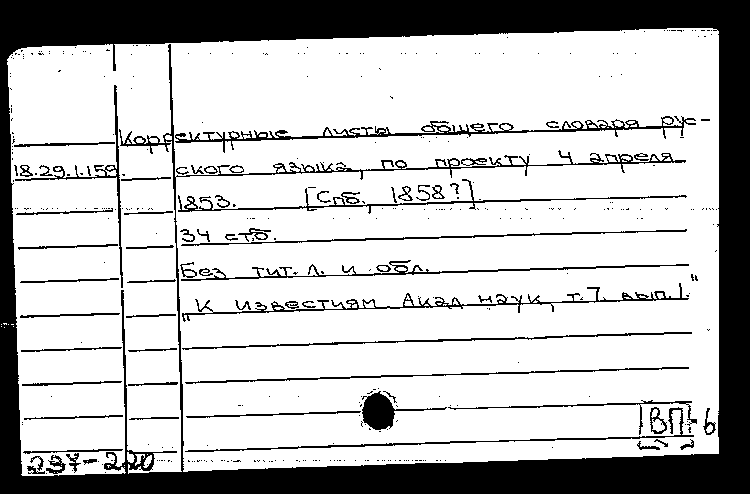 Корректурные листы общего словаря рус-
18.29.1.159. ского языка, по проекту 4 апреля
1853. [Спб., 1858?]
34 стб.
Без тит. л. и обл.
„К известиям Акад наук, т.7. вып.1."
ВП-6
237-220